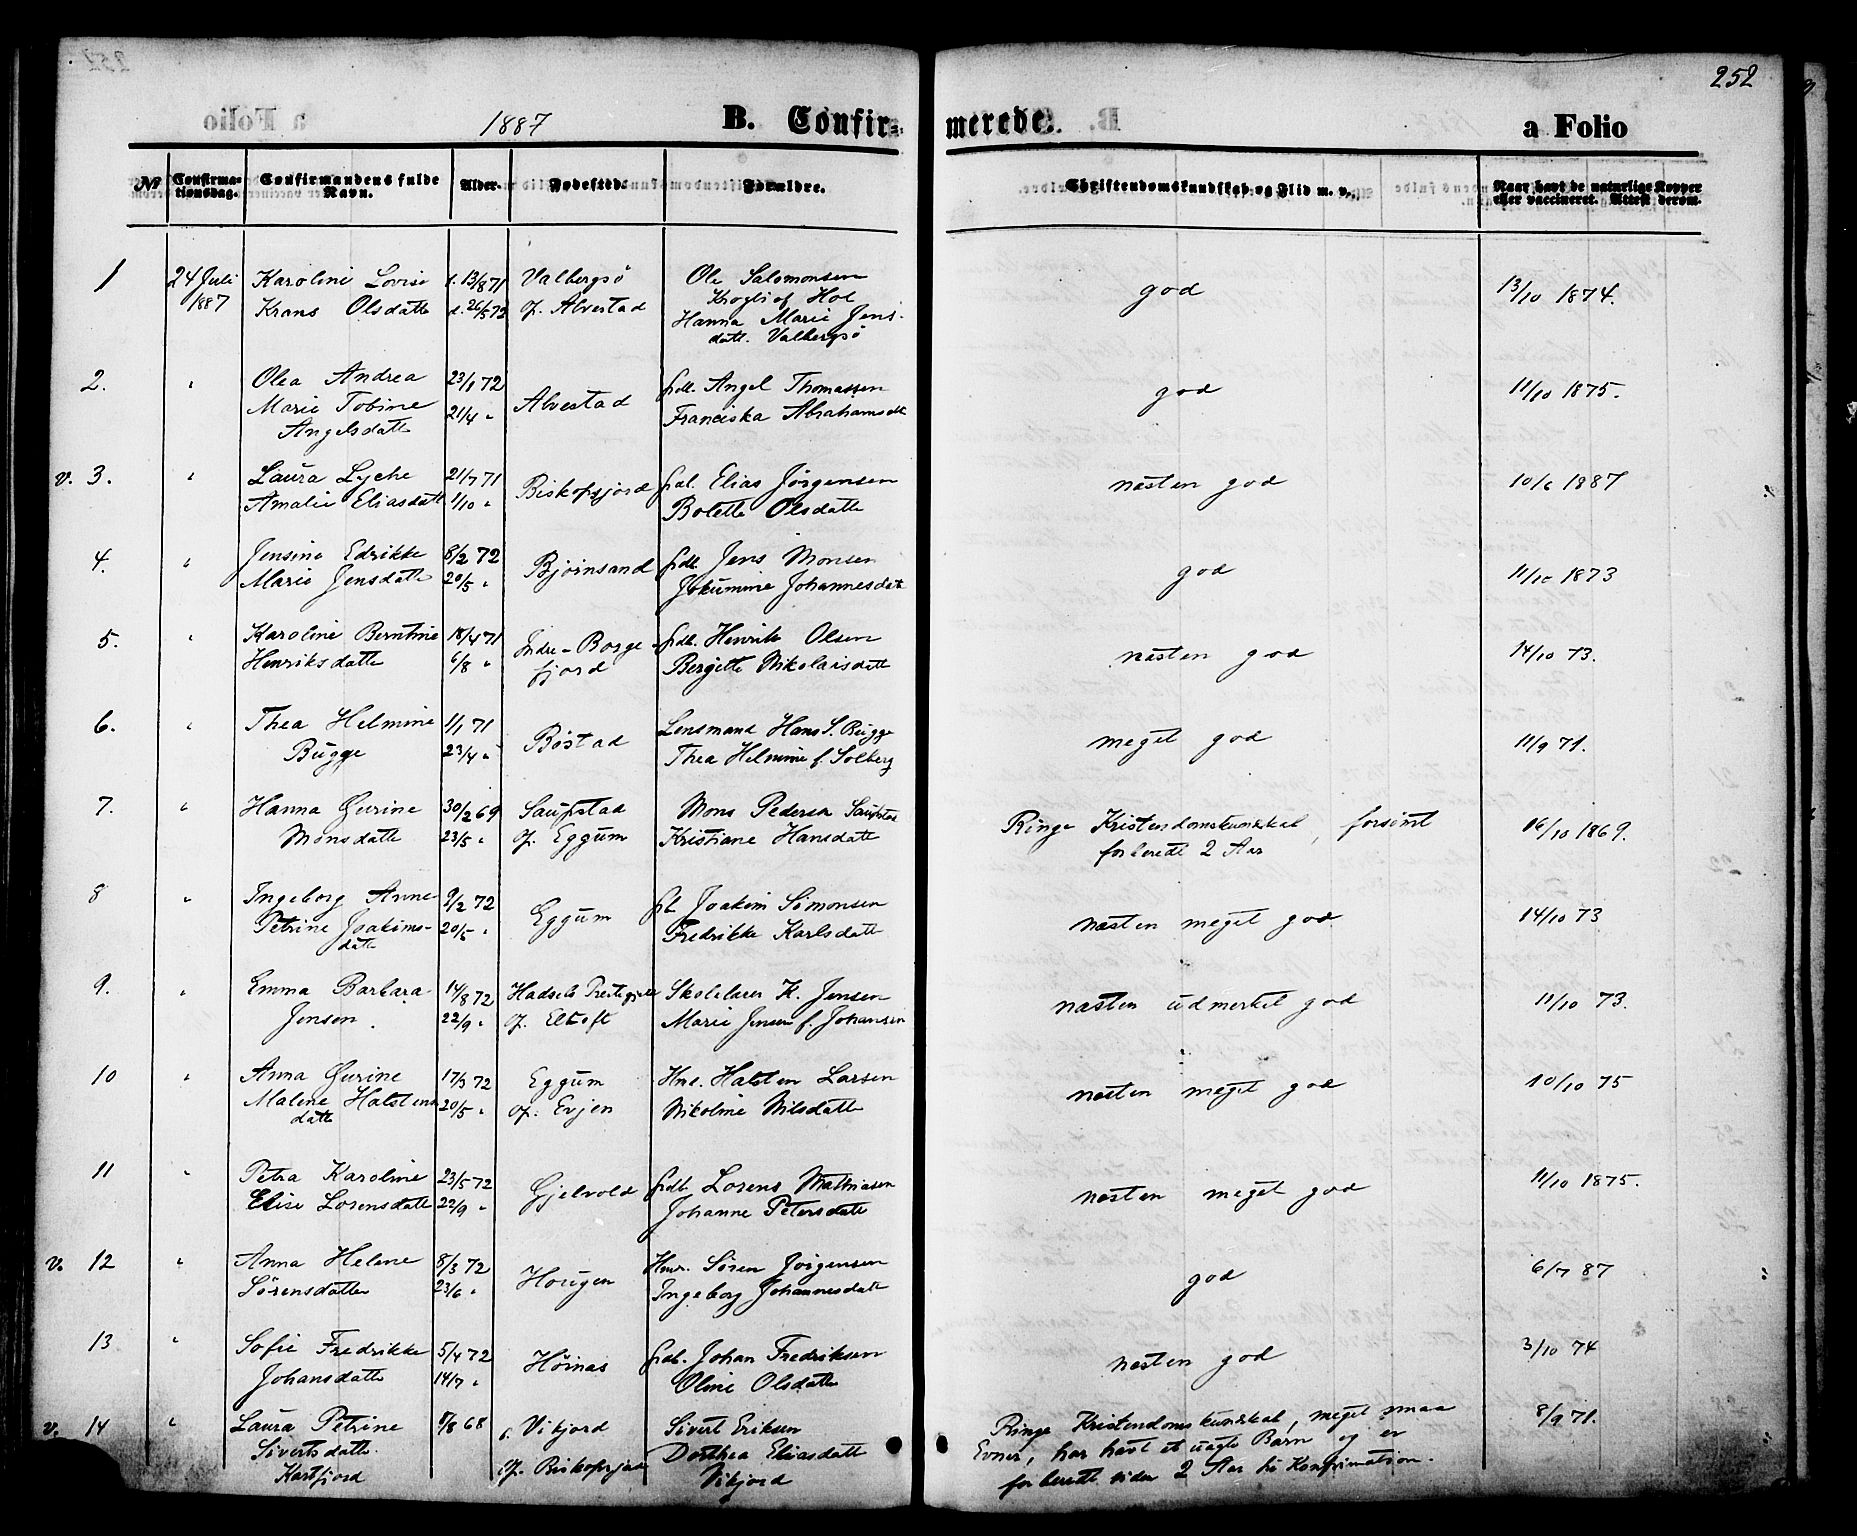 252
1887 B. Confir- merede. a Folio
№ Confirma- tionsdag. Confirmandens fulde Navn. Alder. Fødested. Forældre. Christendomskundskab og Flid m. v. Naar havt de naturlige Kopper eller vaccineret. Attest derom.
1 24 Juli Karoline Lovise f. 13/8 71 Valbergsö Ole Salomonsen god 13/10 1874.
1887 Krans Olsdatter d. 26/5 72 Of. Alvestad Hol
Hanna Marie Jens-
datt. Valbergsö
2. " Olea Andrea 23/1 72 Alvestad frdl. Angel Thomassen god 11/10 1875.
Marie Tobine 21/4 " Franciska Abrahamsdt
Angelsdatt
v. 3. " Laura Lyche 21/7 71 Biskopsjord frdl. Elias Jörgensen næsten god 10/6 1887
Amalie Eliasdatt 11/10 " Bolette Olsdatte
4. " Jensine Edrikke 8/2 72 Bjørnsand frdl. Jens Monsen god 11/10 1873
Marie Jensdatte 20/5 " Jokumine Johannesdatt
5. " Karoline Berntine 18/4 71 Indre-Borge frdl. Henrik Olsen næsten god 14/10 73.
Henriksdatte 6/8 " fjord Bergitte Nikolaisdatt
6. " Thea Helmine 11/1 71 Bøstad Lensmand Hans S. Bugge meget god 11/9 71.
Bugge 23/4 " Thea Helmine f. Solberg
7. " Hanna Gurine 30/2 69 Saupstad Mons Pedersen Saupstad Ringe Kristendomskundskab, forsømt 16/10 1869.
Monsdatte 23/5 " Of. Eggum Kristiane Hansdatt forberedt 2 Aar
8 " Ingeborg Anne 9/2 72 Eggum Joakim Simonsen næsten meget god 14/10 73
Petrine Joakims- 20/5 " Fredrikke Karlsdatt
datte
9. " Emma Barbara 14/8 72 Hadsels Prestegjeld Skolelærer K. Jensen næsten udmerket god 11/10 73.
Jensen. 22/9 " Of. Eltoft Marie Jensen f. Johansen
10 " Anna Gurine 17/3 72 Eggum Hmd. Halsten Larsen næsten meget god 10/10 75
Malene Halstens 20/5 " Of. Evjen Nikoline Nilsdatte
datte
11 " Petra Karoline 23/5 72 Gjelvold frdl. Lorens Mathiasen næsten meget god 11/10 1875.
Elise Lorensdatte 22/9 " Johanne Petersdatt
v. 12 " Anna Helene 8/3 72 Hougen Hmr. Søren Jørgensen god 6/7 87
Sørensdatte 23/6 " Ingeborg Johannesdatt
13 " Sofie Fredrikke 5/4 72 Høinas frdl. Johan Fredriksen næsten god 3/10 74
Johansdatte 14/7 " Oline Olsdatte
v. 14 " Laura Petrine 9/8 68 f. Vikjord Sivert Eriksen Ringe Kristendomskundskab, meget smaa 8/9 71.
Sivertsdatte Of. Biskopsjord Dorthea Eliasdatt Evner, har havt et uægte Barn og er
Kartfjord Vikjord forberedt siden 2 Aar til Konfirmation.